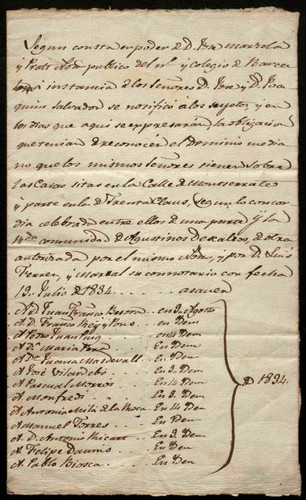 Segun consta en poder de D. Jph. Maria Torla
y Prats Not. publico del n.º y Colegio de Barce
lona a instancia de los Señores D. Jose y D. Joa
quin Salvador se notificó a los sugetos, y en
los dias que aqui se expresaran la obligacion
que tenian de reconocer el Dominio media
no que los mismos Señores tienen sobre
las Casas sitas en la Calle de Monserrate
y parte en la d'Trenta Claus, segun la concor
dia celebrada entre ellos de una parte y la
Rda. comunidad de Agustinos Descalzos, de otra
autorizada por el mismo Notº y por D. Luis
Ferrer, y Marsal su connotario con fecha
19. Julio de 1834. a saver
A D. Juan Franco en 9. Agosto
A D. Franco Rey y Pons en Dem
A Pedro Juan Puig en 4 Dem
A Dª. Maria En Dem
A Dª. Juana Masdevall En Dem
A José Vilardebó En 9. Dem
A Pascual Morros En 14 Dem
A Monfredi En 9. Dem
A Antonia Milá de la Roca En 14 Dem
A Manuel Torres En Dem
A D. Antonio Ricart En 9. Dem
A Felipe Daums En Dem
A Pablo Biosca En Dem
D 1834.